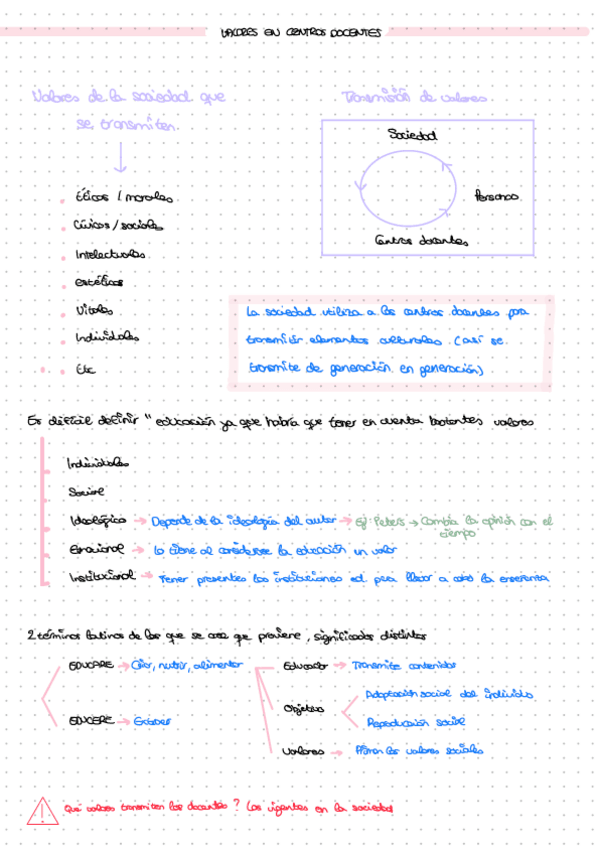 VALORES EN CENTROS DOCENTES
Valores de la sociedad que
se transmiten.
Éticos / morales
Cívicos / sociales
Intelectuales
estéticos
Vitales
Individales
Etc
Transmisión de valores
Sociedad
Personas
Centros docentes
La sociedad utiliza a los centros docentes para
transmitir elementos culturales. (así se
transmite de generación en generación)
Es difícil definir " educación ya que habría que tener en cuenta bastantes valores
Individales
Social
Ideológico → Depende de la ideología del autor → Ej: Peters → Cambia la opinión con el
tiempo
Emocional → Lo tiene al considerarse la educación un valor
Institucional → Tener presentes las instituciones ed. para llevar a cabo la enseñanza
2 términos latinos de los que se cree que proviene, significados distintos
EDUCARE → Criar, nutrir, alimentar
EDUCERE → Extraer
Educador → Transmite contenidos
Objetivo
Adaptación social del individuo
Reproducción social
Valores → Priman los valores sociales
Qué valores transmiten los docentes? Los vigentes en la sociedad